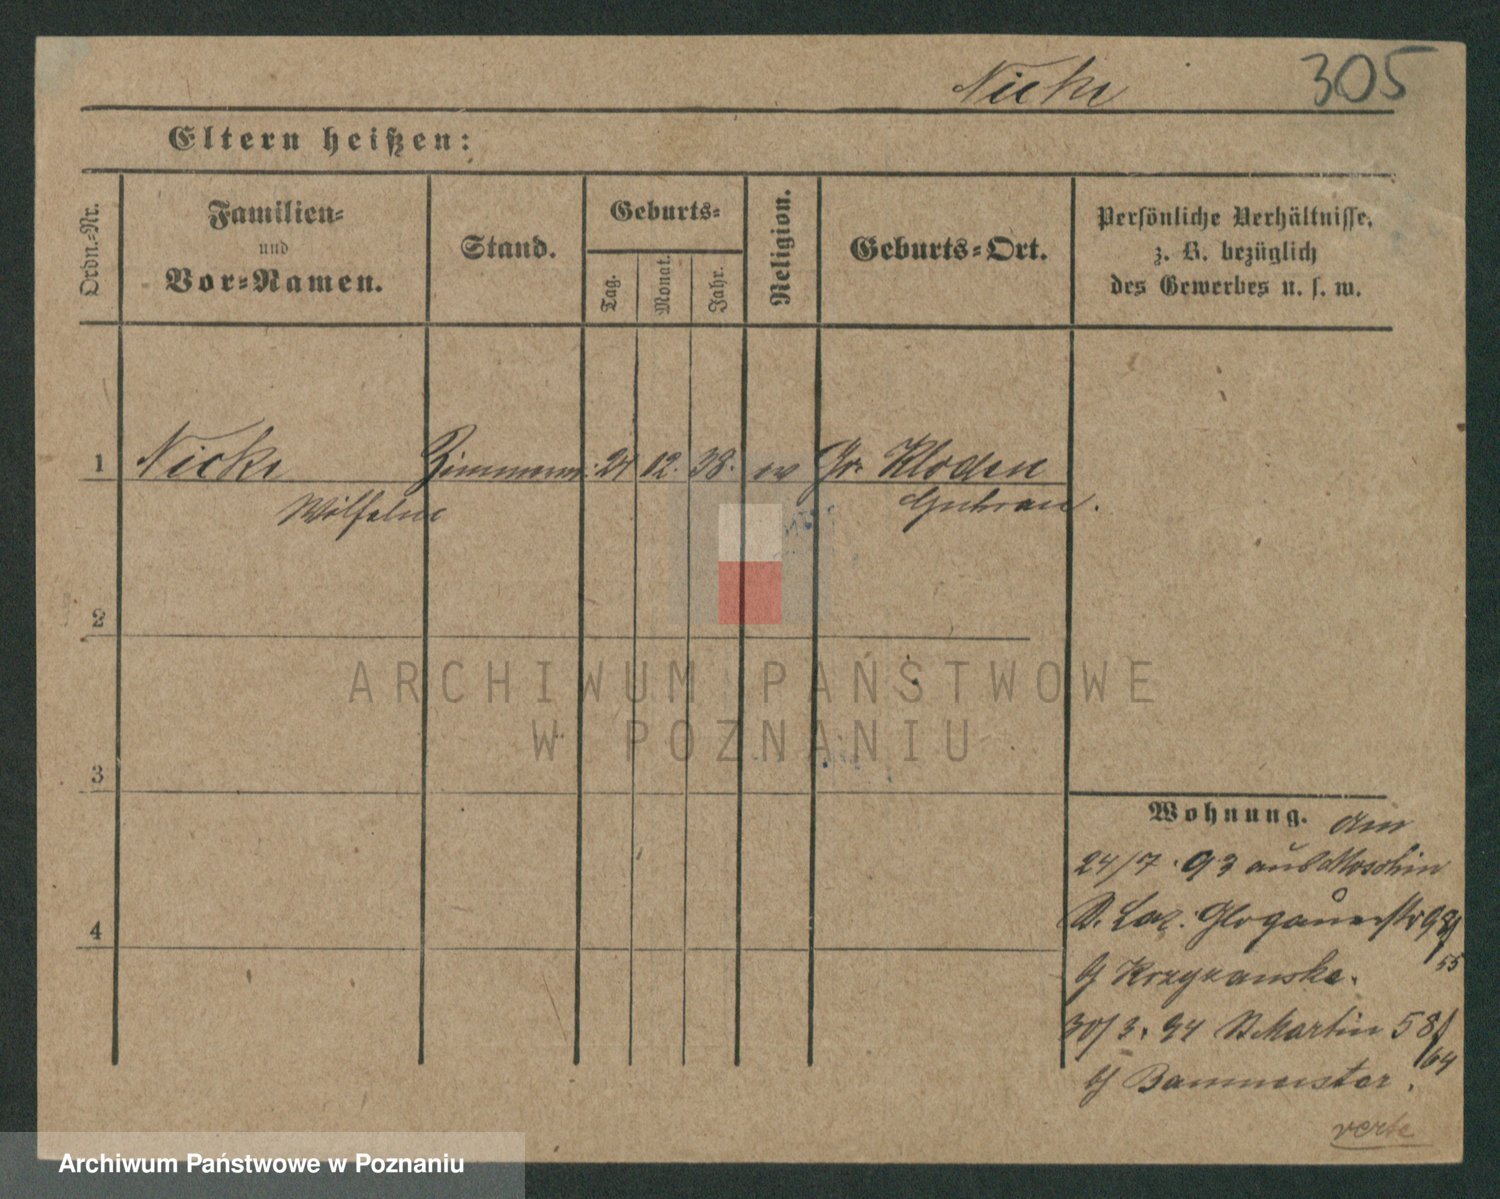 Nicke 305
Eltern heißen:
Ordn.-Nr.
Familien-
und
Vor-Namen.
Stand.
Geburts-
Tag.
Monat.
Jahr.
Religion.
Geburts-Ort.
Persönliche Verhältnisse,
z. B. bezüglich
des Gewerbes u. s. w.
1 Nicke Zimmerm. 24 12. 38. ev Gr Kloden
Wilhelm Guhrau.
2
3
4
Wohnung. Am
24/7. 93 aus Moschin
St. Laz. Glogauerstr 98/
55
b/ Krzyzanska.
30/3. 94 St Martin 58/
64
b/ Baumeister.
verte
ARCHIWUM PAŃSTWOWE
W POZNANIU
Archiwum Państwowe w Poznaniu